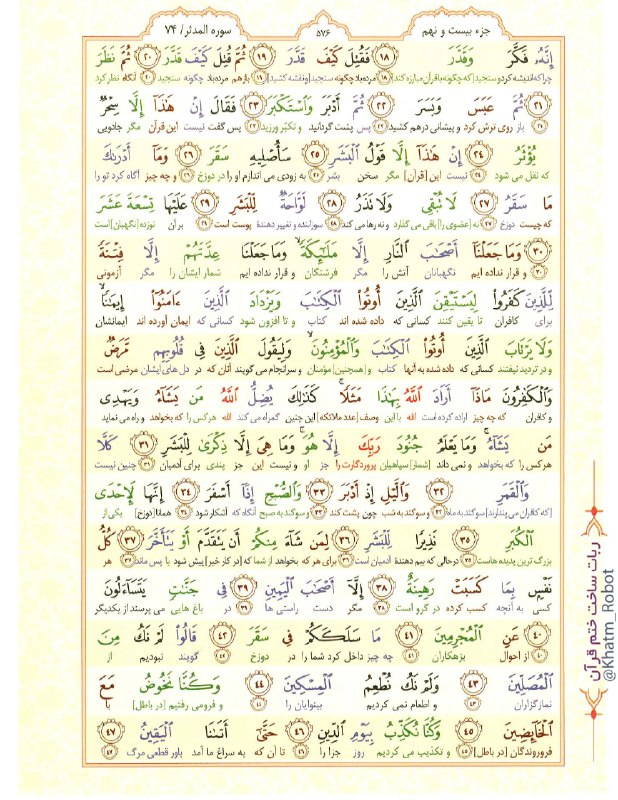 جزء بیست و نهم
۵۷۶
سوره المدثر/ ۷۴
إِنَّهُۥ فَكَّرَ وَقَدَّرَ ١٨ فَقُتِلَ كَيْفَ قَدَّرَ ١٩ ثُمَّ قُتِلَ كَيْفَ قَدَّرَ ٢٠ ثُمَّ نَظَرَ
چراکه اندیشه کرد و سنجید [که چگونه با قرآن مبارزه کند] ۱۸ مرده باد چگونه سنجید [و نقشه کشید] ۱۹ بازهم مرده باد چگونه سنجید ۲۰ آنگاه نظر کرد
٢١ ثُمَّ عَبَسَ وَبَسَرَ ٢٢ ثُمَّ أَدْبَرَ وَٱسْتَكْبَرَ ٢٣ فَقَالَ إِنْ هَٰذَآ إِلَّا سِحْرٌ
۲۱ باز روی ترش کرد و پیشانی درهم کشید ۲۲ پس پشت گردانید و تکبر ورزید ۲۳ پس گفت نیست این قرآن مگر جادویی
يُؤْثَرُ ٢٤ إِنْ هَٰذَآ إِلَّا قَوْلُ ٱلْبَشَرِ ٢٥ سَأُصْلِيهِ سَقَرَ ٢٦ وَمَآ أَدْرَىٰكَ
که نقل می شود ۲۴ نیست این [قرآن] مگر سخن بشر ۲۵ به زودی می اندازم او را در دوزخ ۲۶ و چه چیز آگاه کرد تو را
مَا سَقَرُ ٢٧ لَا تُبْقِى وَلَا تَذَرُ ٢٨ لَوَّاحَةٌ لِّلْبَشَرِ ٢٩ عَلَيْهَا تِسْعَةَ عَشَرَ
که چیست دوزخ ۲۷ نه [عضوی را] باقی می گذارد و نه رها می کند ۲۸ سوزاننده و تغییر دهندهٔ پوست است ۲۹ بر آن نوزده [نگهبان] است
٣٠ وَمَا جَعَلْنَآ أَصْحَٰبَ ٱلنَّارِ إِلَّا مَلَٰٓئِكَةً وَمَا جَعَلْنَا عِدَّتَهُمْ إِلَّا فِتْنَةً
۳۰ و قرار نداده ایم نگهبانان آتش را مگر فرشتگان و قرار نداده ایم شمار ایشان را مگر آزمونی
لِّلَّذِينَ كَفَرُوا۟ لِيَسْتَيْقِنَ ٱلَّذِينَ أُوتُوا۟ ٱلْكِتَٰبَ وَيَزْدَادَ ٱلَّذِينَ ءَامَنُوٓا۟ إِيمَٰنًا
برای کافران تا یقین کنند کسانی که داده شده اند کتاب و تا افزون شود کسانی که ایمان آورده اند ایمانشان
وَلَا يَرْتَابَ ٱلَّذِينَ أُوتُوا۟ ٱلْكِتَٰبَ وَٱلْمُؤْمِنُونَ وَلِيَقُولَ ٱلَّذِينَ فِى قُلُوبِهِم مَّرَضٌ
و در تردید نیفتند کسانی که داده شده به آنها کتاب و [همچنین] مؤمنان و سرانجام می گویند آنان که در دل های ایشان مرضی است
وَٱلْكَٰفِرُونَ مَاذَآ أَرَادَ ٱللَّهُ بِهَٰذَا مَثَلًا كَذَٰلِكَ يُضِلُّ ٱللَّهُ مَن يَشَآءُ وَيَهْدِى
و کافران که چه چیز اراده کرده است الله با این وصف [عدد ملائکه] این چنین گمراه می کند الله هرکس را که بخواهد و راه می نماید
مَن يَشَآءُ وَمَا يَعْلَمُ جُنُودَ رَبِّكَ إِلَّا هُوَ وَمَا هِىَ إِلَّا ذِكْرَىٰ لِلْبَشَرِ ٣١ كَلَّا
هرکس را که بخواهد و نمی داند [شمار] سپاهیان پروردگارت را جز او و نیست این جز پندی برای آدمیان ۳۱ چنین نیست
وَٱلْقَمَرِ ٣٢ وَٱلَّيْلِ إِذْ أَدْبَرَ ٣٣ وَٱلصُّبْحِ إِذَآ أَسْفَرَ ٣٤ إِنَّهَا لَإِحْدَى
[که کافران می پندارند] سوگند به ماه ۳۲ و سوگند به شب چون پشت کند ۳۳ و سوگند به صبح آنگاه که آشکار شود ۳۴ همانا [دوزخ] یکی از
ٱلْكُبَرِ ٣٥ نَذِيرًا لِّلْبَشَرِ ٣٦ لِمَن شَآءَ مِنكُمْ أَن يَتَقَدَّمَ أَوْ يَتَأَخَّرَ ٣٧ كُلُّ
بزرگ ترین پدیده هاست ۳۵ درحالی که بیم دهندهٔ آدمیان است ۳۶ برای هر که بخواهد از شما که [در کار خیر] پیش شود یا پس ماند ۳۷ هر
نَفْسٍۭ بِمَا كَسَبَتْ رَهِينَةٌ ٣٨ إِلَّآ أَصْحَٰبَ ٱلْيَمِينِ ٣٩ فِى جَنَّٰتٍ يَتَسَآءَلُونَ
کسی به آنچه کسب کرده در گرو است ۳۸ مگر دست راستی ها ۳۹ در باغ هایی می پرسند از یکدیگر
٤٠ عَنِ ٱلْمُجْرِمِينَ ٤١ مَا سَلَكَكُمْ فِى سَقَرَ ٤٢ قَالُوا۟ لَمْ نَكُ مِنَ
۴۰ از احوال بزهکاران ۴۱ چه چیز داخل کرد شما را در دوزخ ۴۲ گویند نبودیم از
ٱلْمُصَلِّينَ ٤٣ وَلَمْ نَكُ نُطْعِمُ ٱلْمِسْكِينَ ٤٤ وَكُنَّا نَخُوضُ مَعَ
نمازگزاران ۴۳ و اطعام نمی کردیم بینوایان را ۴۴ و فرومی رفتیم [در باطل] با
ٱلْخَآئِضِينَ ٤٥ وَكُنَّا نُكَذِّبُ بِيَوْمِ ٱلدِّينِ ٤٦ حَتَّىٰٓ أَتَىٰنَا ٱلْيَقِينُ ٤٧
فروروندگان [در باطل] ۴۵ و تکذیب می کردیم روز جزا را ۴۶ تا آن که به سراغ ما آمد باور قطعی مرگ ۴۷
ربات ساخت ختم قرآن
@Khatm_Robot